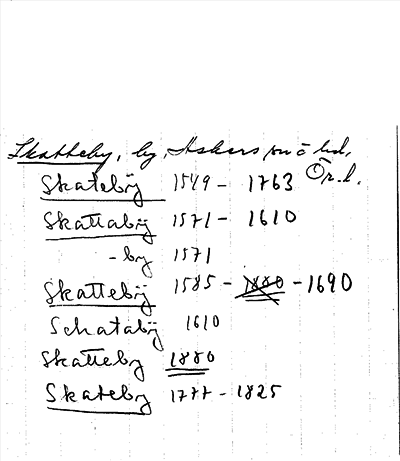 Skatteby, by, Askers sn o hd,
Ör. l.
Skatebÿ 1549 - 1763
Skattabÿ 1571 - 1610
- by 1571
Skattebÿ 1585 - 1880 - 1690
Schatabÿ 1610
Skatteby 1880
Skateby 1777 - 1825